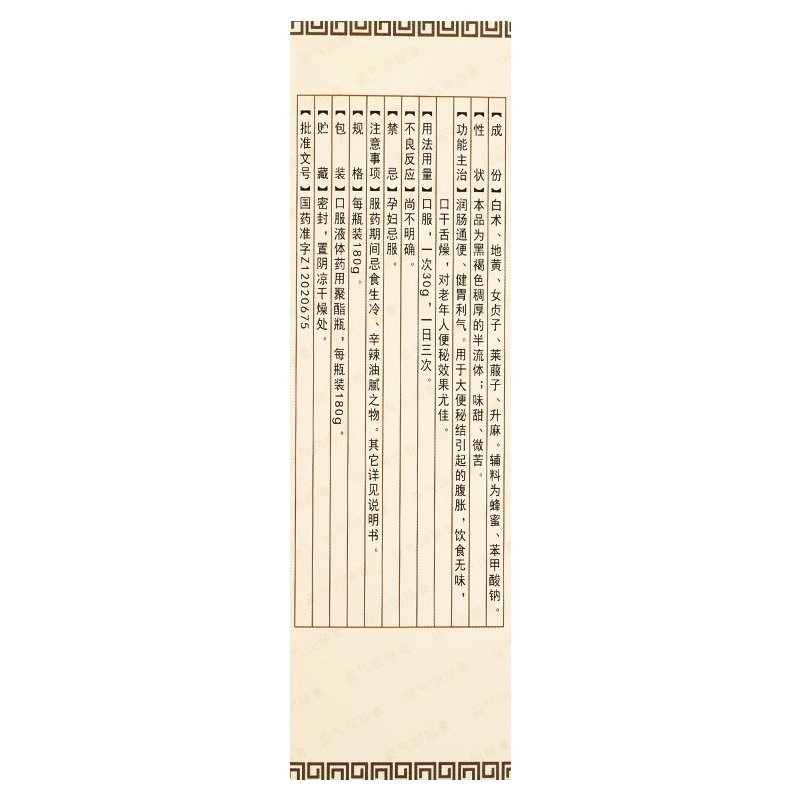 【成份】白术、地黄、女贞子、莱菔子、升麻。辅料为蜂蜜、苯甲酸钠。
【性状】本品为黑褐色稠厚的半流体；味甜、微苦。
【功能主治】润肠通便、健胃利气。用于大便秘结引起的腹胀，饮食无味，
口干舌燥，对老年人便秘效果尤佳。
【用法用量】口服，一次30g，一日三次。
【不良反应】尚不明确。
【禁忌】孕妇忌服。
【注意事项】服药期间忌食生冷、辛辣油腻之物。其它详见说明书。
【规格】每瓶装180g。
【包装】口服液体药用聚酯瓶，每瓶装180g。
【贮藏】密封，置阴凉干燥处。
【批准文号】国药准字Z12020675
益气润肠膏